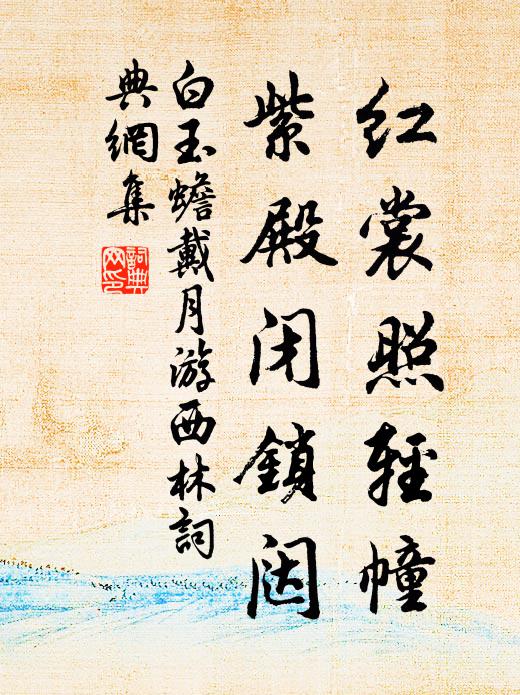 红裳照輕幢
紫殿闭鎖闼
白玉蟾戴月游西林詞
典網集
詞典
网印